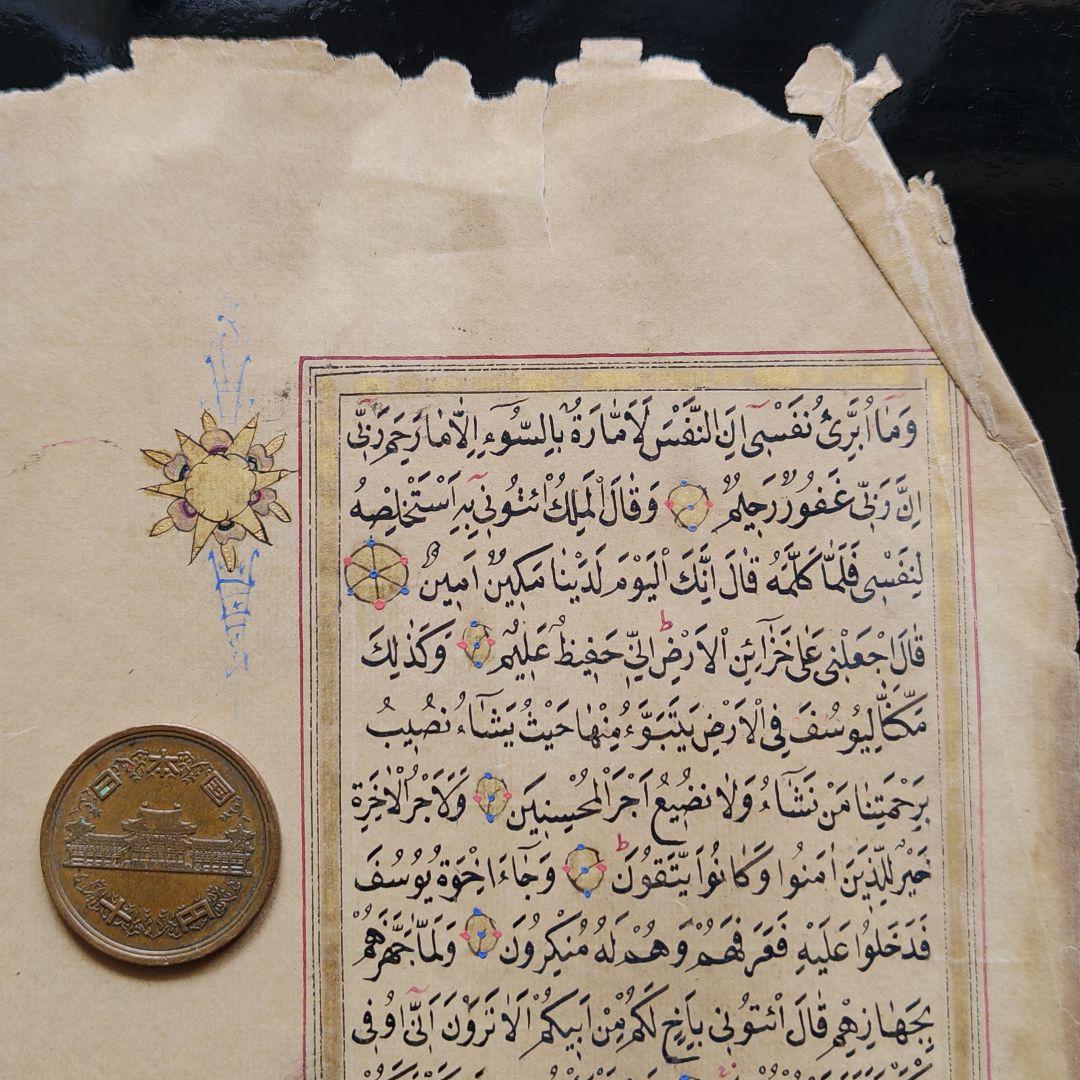 وَمَٓا اُبَرِّئُ نَفْسٖى اِنَّ النَّفْسَ لَاَمَّارَةٌ بِالسُّٓوءِ اِلَّا مَا رَحِمَ رَبّٖى
اِنَّ رَبّٖى غَفُورٌ رَحٖيمٌ وَقَالَ الْمَلِكُ ائْتُونٖى بِهٖٓ اَسْتَخْلِصْهُ
لِنَفْسٖى فَلَمَّا كَلَّمَهُ قَالَ اِنَّكَ الْيَوْمَ لَدَيْنَا مَكٖينٌ اَمٖينٌ
قَالَ اجْعَلْنٖى عَلٰى خَزَٓائِنِ الْاَرْضِ ط اِنّٖى حَفٖيظٌ عَلٖيمٌ وَكَذٰلِكَ
مَكَّنَّا لِيُوسُفَ فِى الْاَرْضِ يَتَبَوَّءُ مِنْهَا حَيْثُ يَشَٓاءُ نُصٖيبُ
بِرَحْمَتِنَا مَنْ نَشَٓاءُ وَلَا نُضٖيعُ اَجْرَ الْمُحْسِنٖينَ وَلَاَجْرُ الْاٰخِرَةِ
خَيْرٌ لِلَّذٖينَ اٰمَنُوا وَكَانُوا يَتَّقُونَ ط وَجَٓاءَ اِخْوَةُ يُوسُفَ
فَدَخَلُوا عَلَيْهِ فَعَرَفَهُمْ وَهُمْ لَهُ مُنْكِرُونَ وَلَمَّا جَهَّزَهُمْ
بِجَهَازِهِمْ قَالَ ائْتُونٖى بِاَخٍ لَكُمْ مِنْ اَبٖيكُمْ اَلَا تَرَوْنَ اَنّٖٓى اُوفِى
日本国
十円